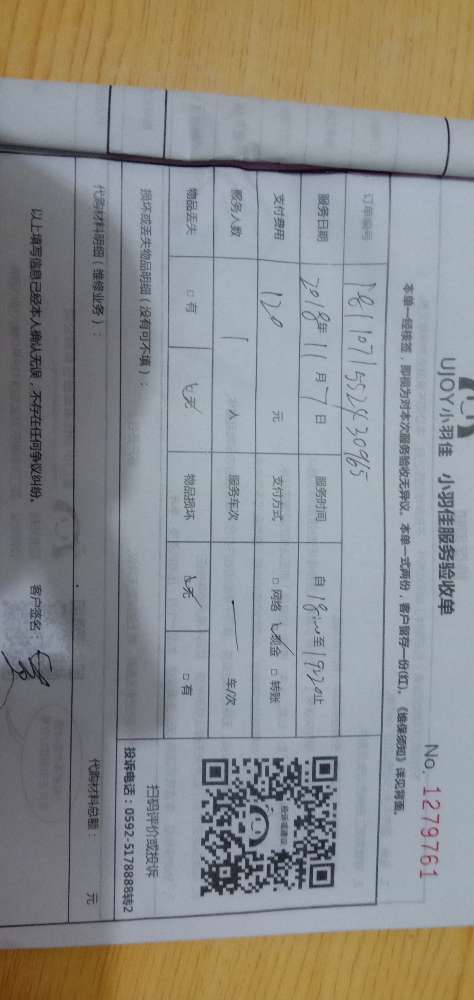 UJOY小羽佳 小羽佳服务验收单
No. 1279761
本单一经核签，即视为对本次服务验收无异议。本单一式两份，客户留存一份(红)，《维保须知》详见背面。
订单编号
服务日期 2018年 11 月 7 日 服务时间 自 至 止
支付费用 120 元 支付方式 □ 网络 ☑ 现金 □ 转账
服务人数 1 人 服务车次 一 车/次
物品丢失 □ 有 ☑ 无 物品损坏 ☑ 无 □ 有
损坏或丢失物品明细（没有可不填）：
扫码评价或投诉
投诉电话：0592-5178888转2
代购材料明细（维修业务）： 代购材料总额： 元
以上填写信息已经本人确认无误，不存在任何争议纠纷。 客户签名：